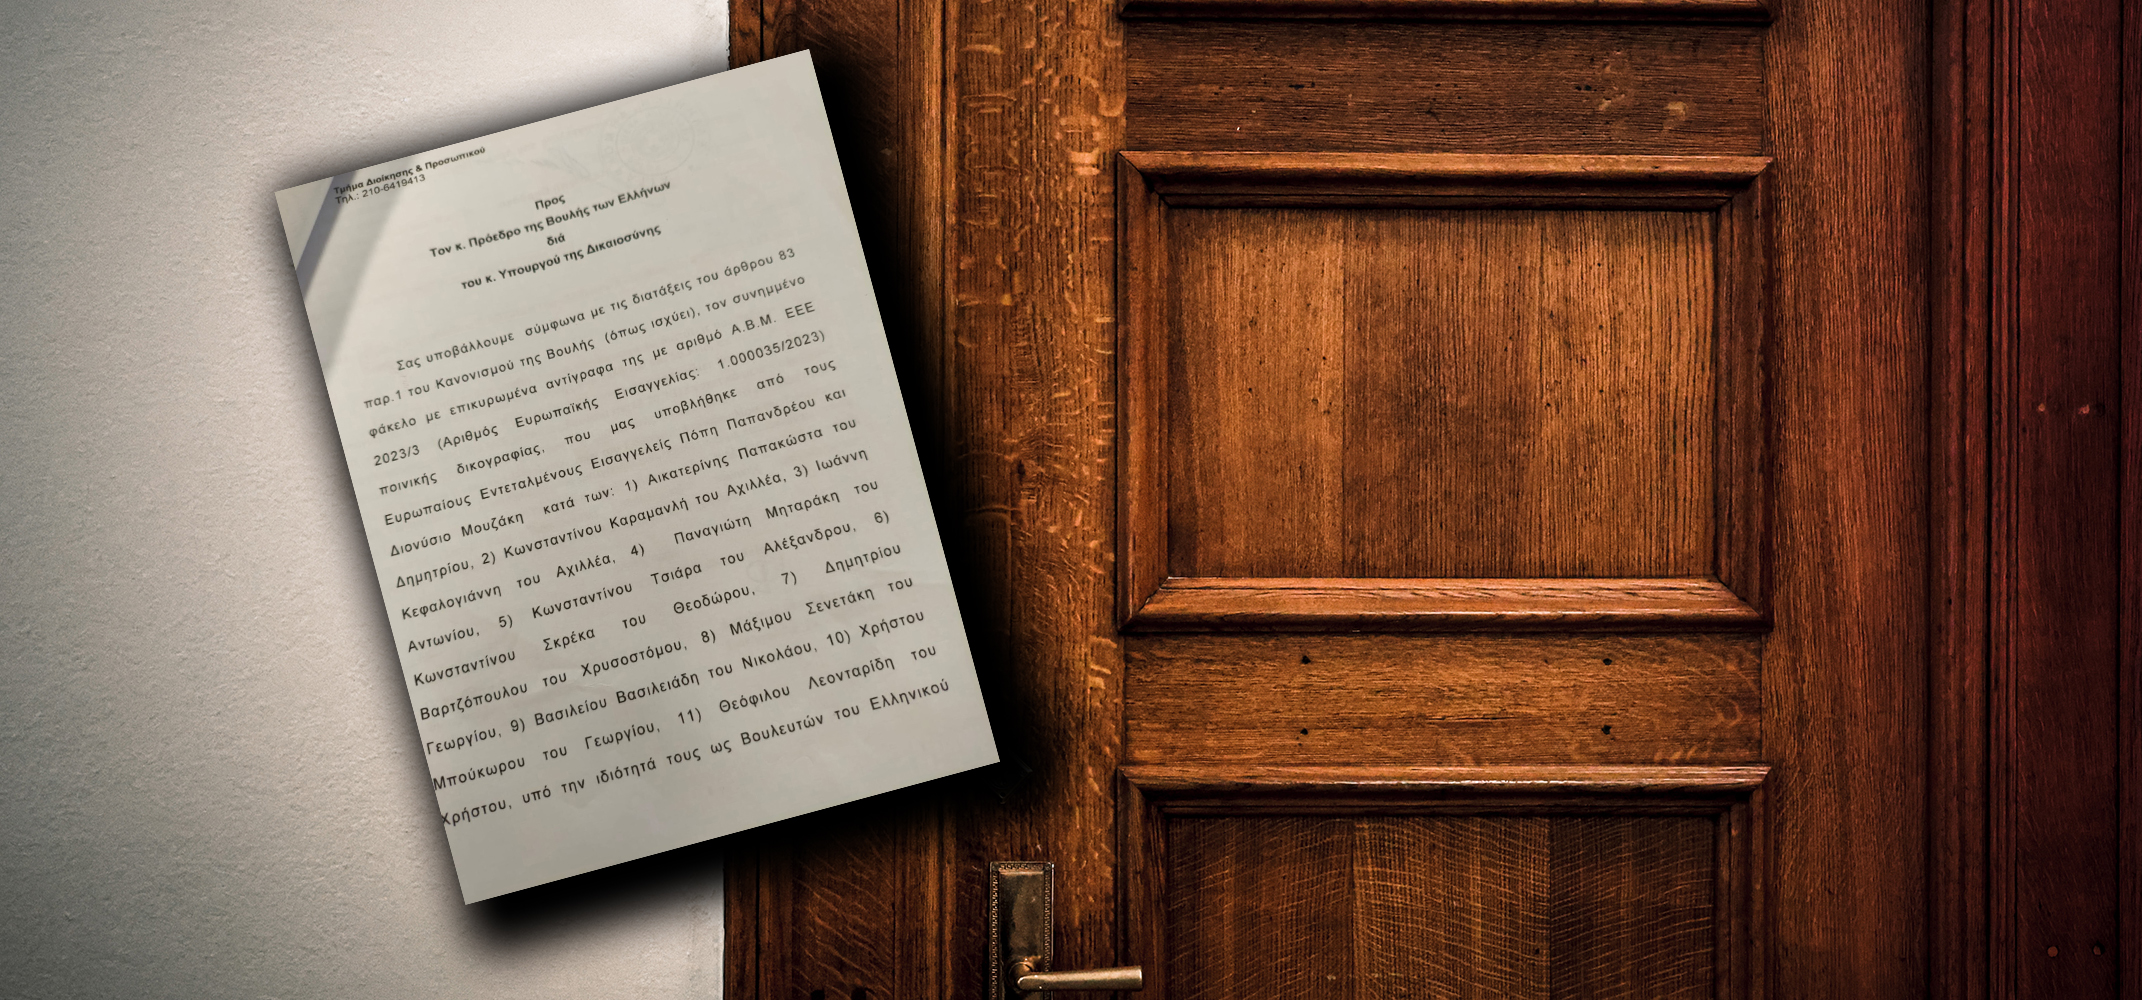 Τμήμα Διοίκησης & Προσωπικού
Τηλ.: 210-6419413
Προς
Τον κ. Πρόεδρο της Βουλής των Ελλήνων
διά
του κ. Υπουργού της Δικαιοσύνης
Σας υποβάλλουμε σύμφωνα με τις διατάξεις του άρθρου 83
παρ.1 του Κανονισμού της Βουλής (όπως ισχύει), τον συνημμένο
φάκελο με επικυρωμένα αντίγραφα της με αριθμό Α.Β.Μ. ΕΕΕ
2023/3 (Αριθμός Ευρωπαϊκής Εισαγγελίας: 1.000035/2023)
ποινικής δικογραφίας, που μας υποβλήθηκε από τους
Ευρωπαίους Εντεταλμένους Εισαγγελείς Πόπη Παπανδρέου και
Διονύσιο Μουζάκη κατά των: 1) Αικατερίνης Παπακώστα του
Δημητρίου, 2) Κωνσταντίνου Καραμανλή του Αχιλλέα, 3) Ιωάννη
Κεφαλογιάννη του Αχιλλέα, 4) Παναγιώτη Μηταράκη του
Αντωνίου, 5) Κωνσταντίνου Τσιάρα του Αλέξανδρου, 6)
Κωνσταντίνου Σκρέκα του Θεοδώρου, 7) Δημητρίου
Βαρτζόπουλου του Χρυσοστόμου, 8) Μάξιμου Σενετάκη του
Γεωργίου, 9) Βασιλείου Βασιλειάδη του Νικολάου, 10) Χρήστου
Μπούκωρου του Γεωργίου, 11) Θεόφιλου Λεονταρίδη του
Χρήστου, υπό την ιδιότητά τους ως Βουλευτών του Ελληνικού